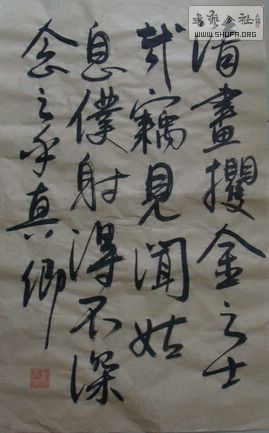 清晝攫金之士
哉竊見聞姑
息僕射得不深
念之乎真卿
WWW.SHUFA.ORG